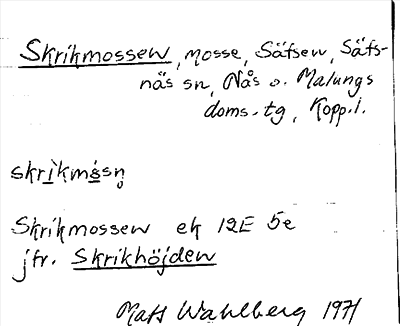 Skrikmossen, mosse, Säfsen, Säfs-
näs sn, Nås o. Malungs
doms. tg, Kopp.l.
skrikmåsn̥
Skrikmossen ek 12E 5e
jfr. Skrikhöjden
Mats Wahlberg 1971